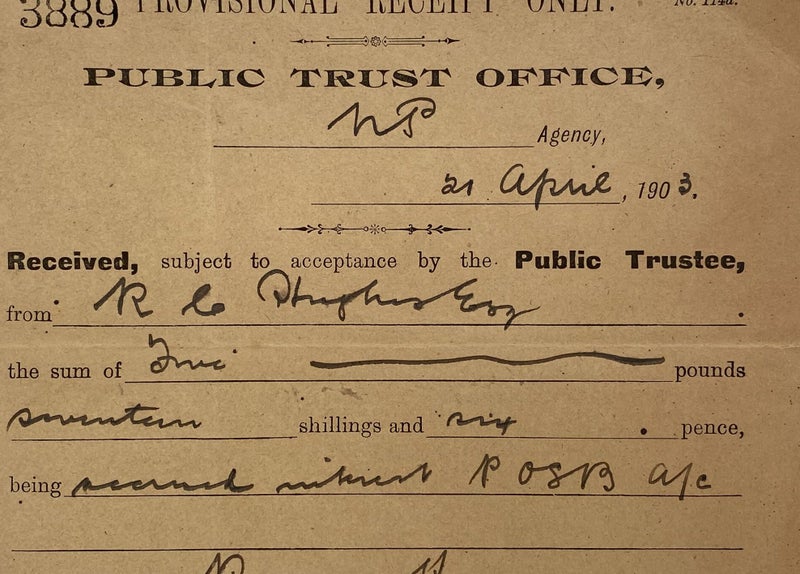 3889 PROVISIONAL RECEIPT ONLY. No. 114a.
PUBLIC TRUST OFFICE,
NP Agency,
21 April, 1903.
Received, subject to acceptance by the Public Trustee,
from R C Hughes Esq.
the sum of pounds
seventeen shillings and six pence,
being accrued interest P OSB A/c